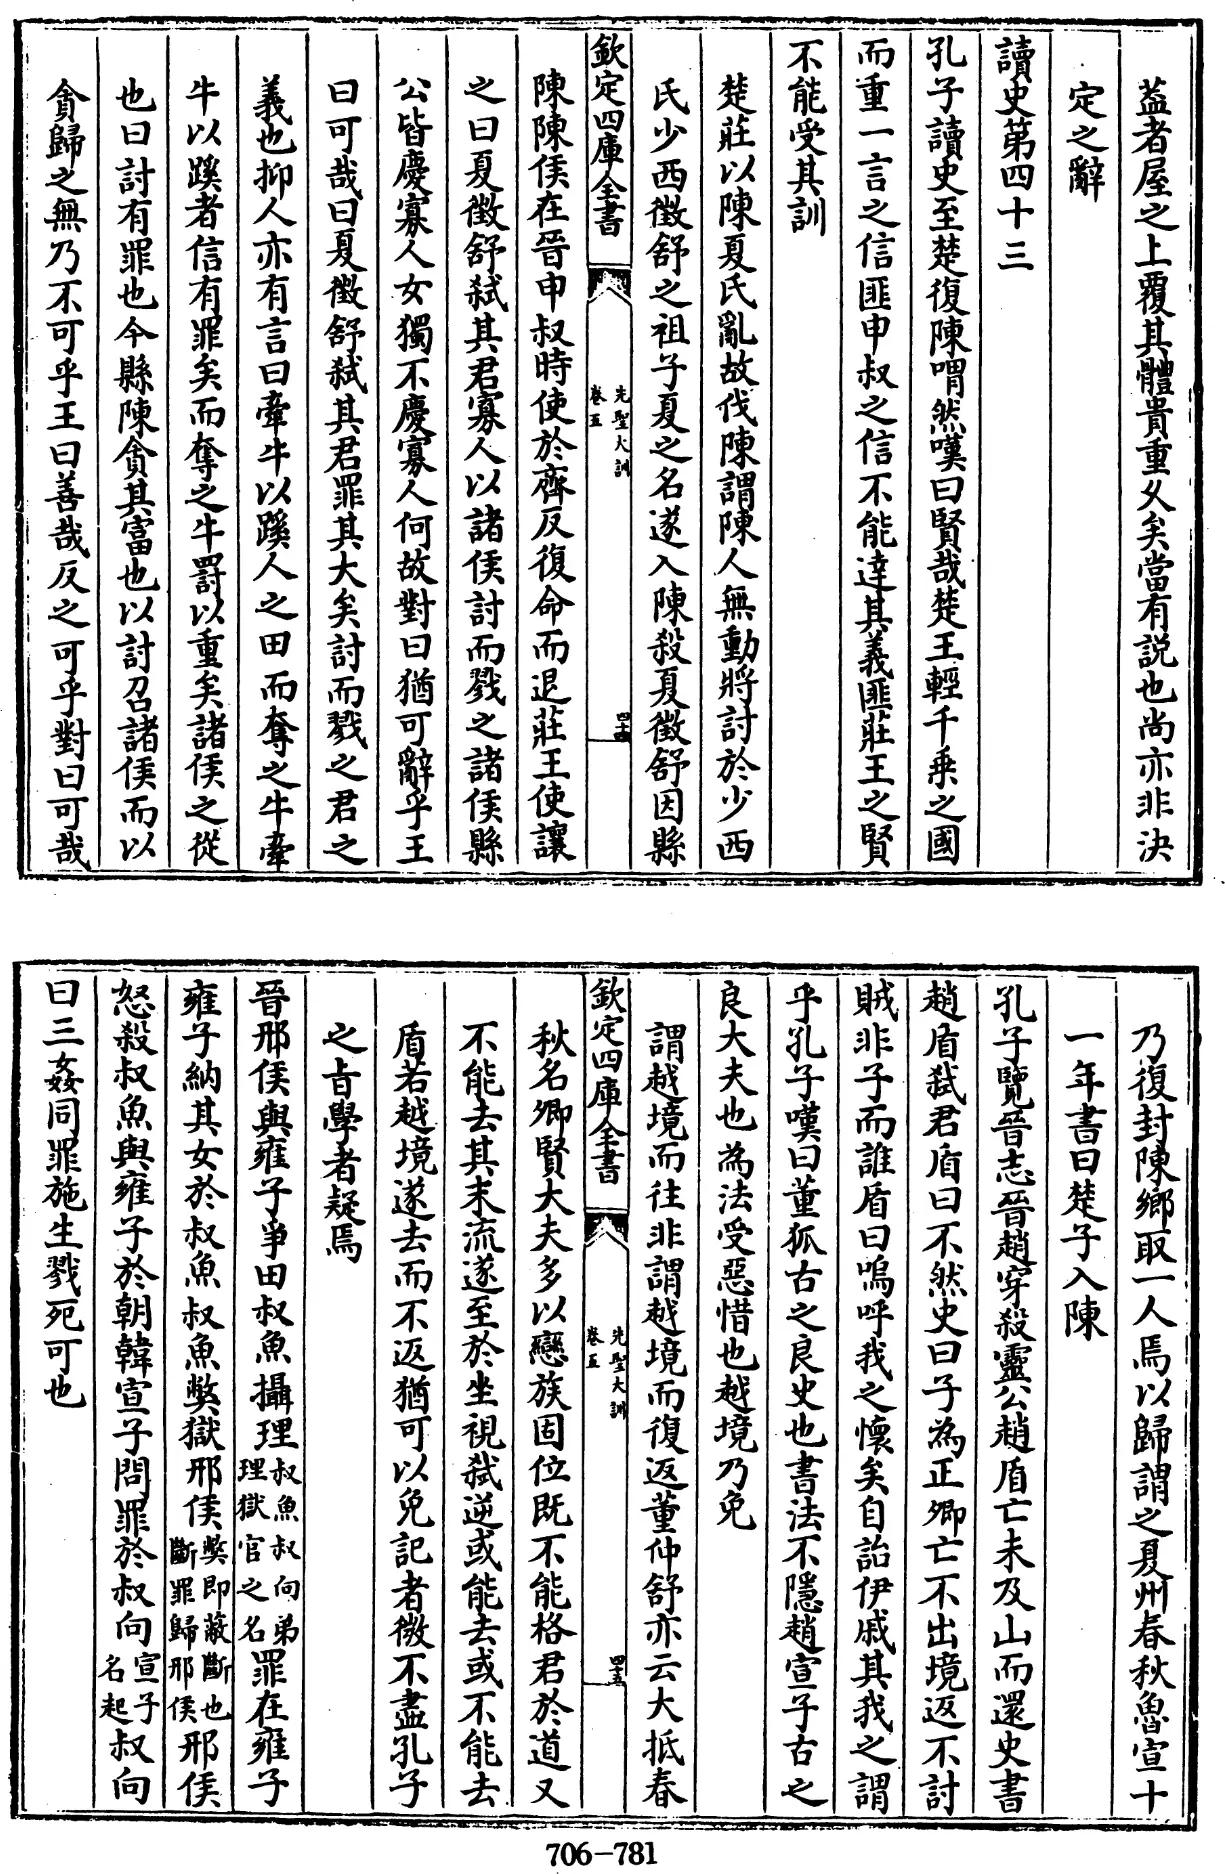 葢者屋之上覆其體貴重乆矣當有説也尚亦非決
定之辭
讀史第四十三
孔子讀史至楚復陳喟然嘆曰賢哉楚王輕千乗之國
而重一言之信匪申叔之信不能達其義匪莊王之賢
不能受其訓
楚莊以陳夏氏亂故伐陳謂陳人無動將討於少西
氏少西徵舒之祖子夏之名遂入陳殺夏徵舒因縣
欽定四庫全書
先聖大訓
卷五
四十四
陳陳侯在晉申叔時使於齊反復命而退莊王使讓
之曰夏徵舒弑其君寡人以諸侯討而戮之諸侯縣
公皆慶寡人女獨不慶寡人何故對曰猶可辭乎王
曰可哉曰夏徵舒弑其君罪其大矣討而戮之君之
義也抑人亦有言曰牽牛以蹊人之田而奪之牛牽
牛以蹊者信有罪矣而奪之牛罰以重矣諸侯之從
也曰討有罪也今縣陳貪其富也以討召諸侯而以
貪歸之無乃不可乎王曰善哉反之可乎對曰可哉
乃復封陳鄉取一人焉以歸謂之夏州春秋魯宣十
一年書曰楚子入陳
孔子覽晉志晉趙穿殺靈公趙盾亡未及山而還史書
趙盾弑君盾曰不然史曰子為正卿亡不出境返不討
賊非子而誰盾曰嗚呼我之懷矣自詒伊戚其我之謂
乎孔子嘆曰董狐古之良史也書法不隱趙宣子古之
良大夫也為法受惡惜也越境乃免
謂越境而往非謂越境而復返董仲舒亦云大抵春
欽定四庫全書
先聖大訓
卷五
四十五
秋名卿賢大夫多以戀族固位既不能格君於道又
不能去其末流遂至於坐視弑逆或能去或不能去
盾若越境遂去而不返猶可以免記者微不盡孔子
之㫖學者疑焉
晉邢侯與雍子爭田叔魚攝理叔魚叔向弟理獄官之名罪在雍子
雍子納其女於叔魚叔魚獘獄邢侯獘即蔽斷也斷罪歸邢侯邢侯
怒殺叔魚與雍子於朝韓宣子問罪於叔向宣子名起叔向
曰三姦同罪施生戮死可也
706-781